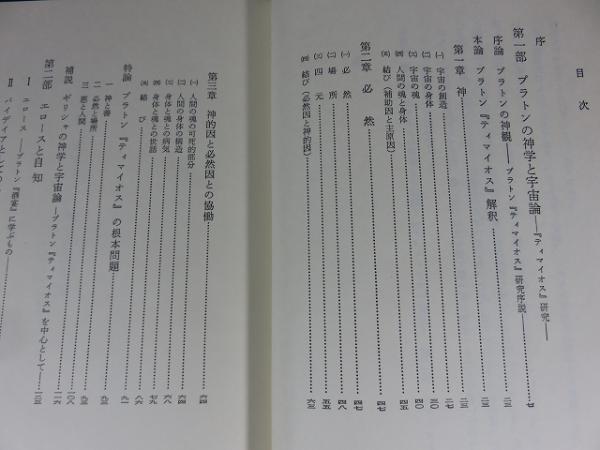 目次
序
第一部 プラトンの神学と宇宙論――『ティマイオス』研究――……七
序論 プラトンの神観――プラトン『ティマイオス』研究序説――……二三
本論 プラトン『ティマイオス』解釈……二三
第一章 神……二三
㈠ 宇宙の創造……二七
㈡ 宇宙の身体……三〇
㈢ 宇宙の魂……四〇
㈣ 人間の魂と身体……四五
㈤ 結び（補助因と主原因）……四七
第二章 必然……四七
㈠ 必然……四八
㈡ 場所……五五
㈢ 四元……
㈣ 結び（必然因と神的因）……六三
第三章 神的因と必然因との協働……六四
㈠ 人間の魂の可死的部分……六四
㈡ 人間の身体の構造……六八
㈢ 身体と魂との病気……
㈣ 身体と魂との世話……七九
㈤ 結び……八六
特論 プラトン『ティマイオス』の根本問題……九一
一 神と善……
二 必然と場所……九三
三 悪と人間……九三
補説 ギリシャの神学と宇宙論――プラトン『ティマイオス』を中心として――……一〇八
第二部 エロースと自知……一一六
Ⅰ エロース――プラトン『饗宴』に学ぶもの――……一三三
Ⅱ パイデイアとしての